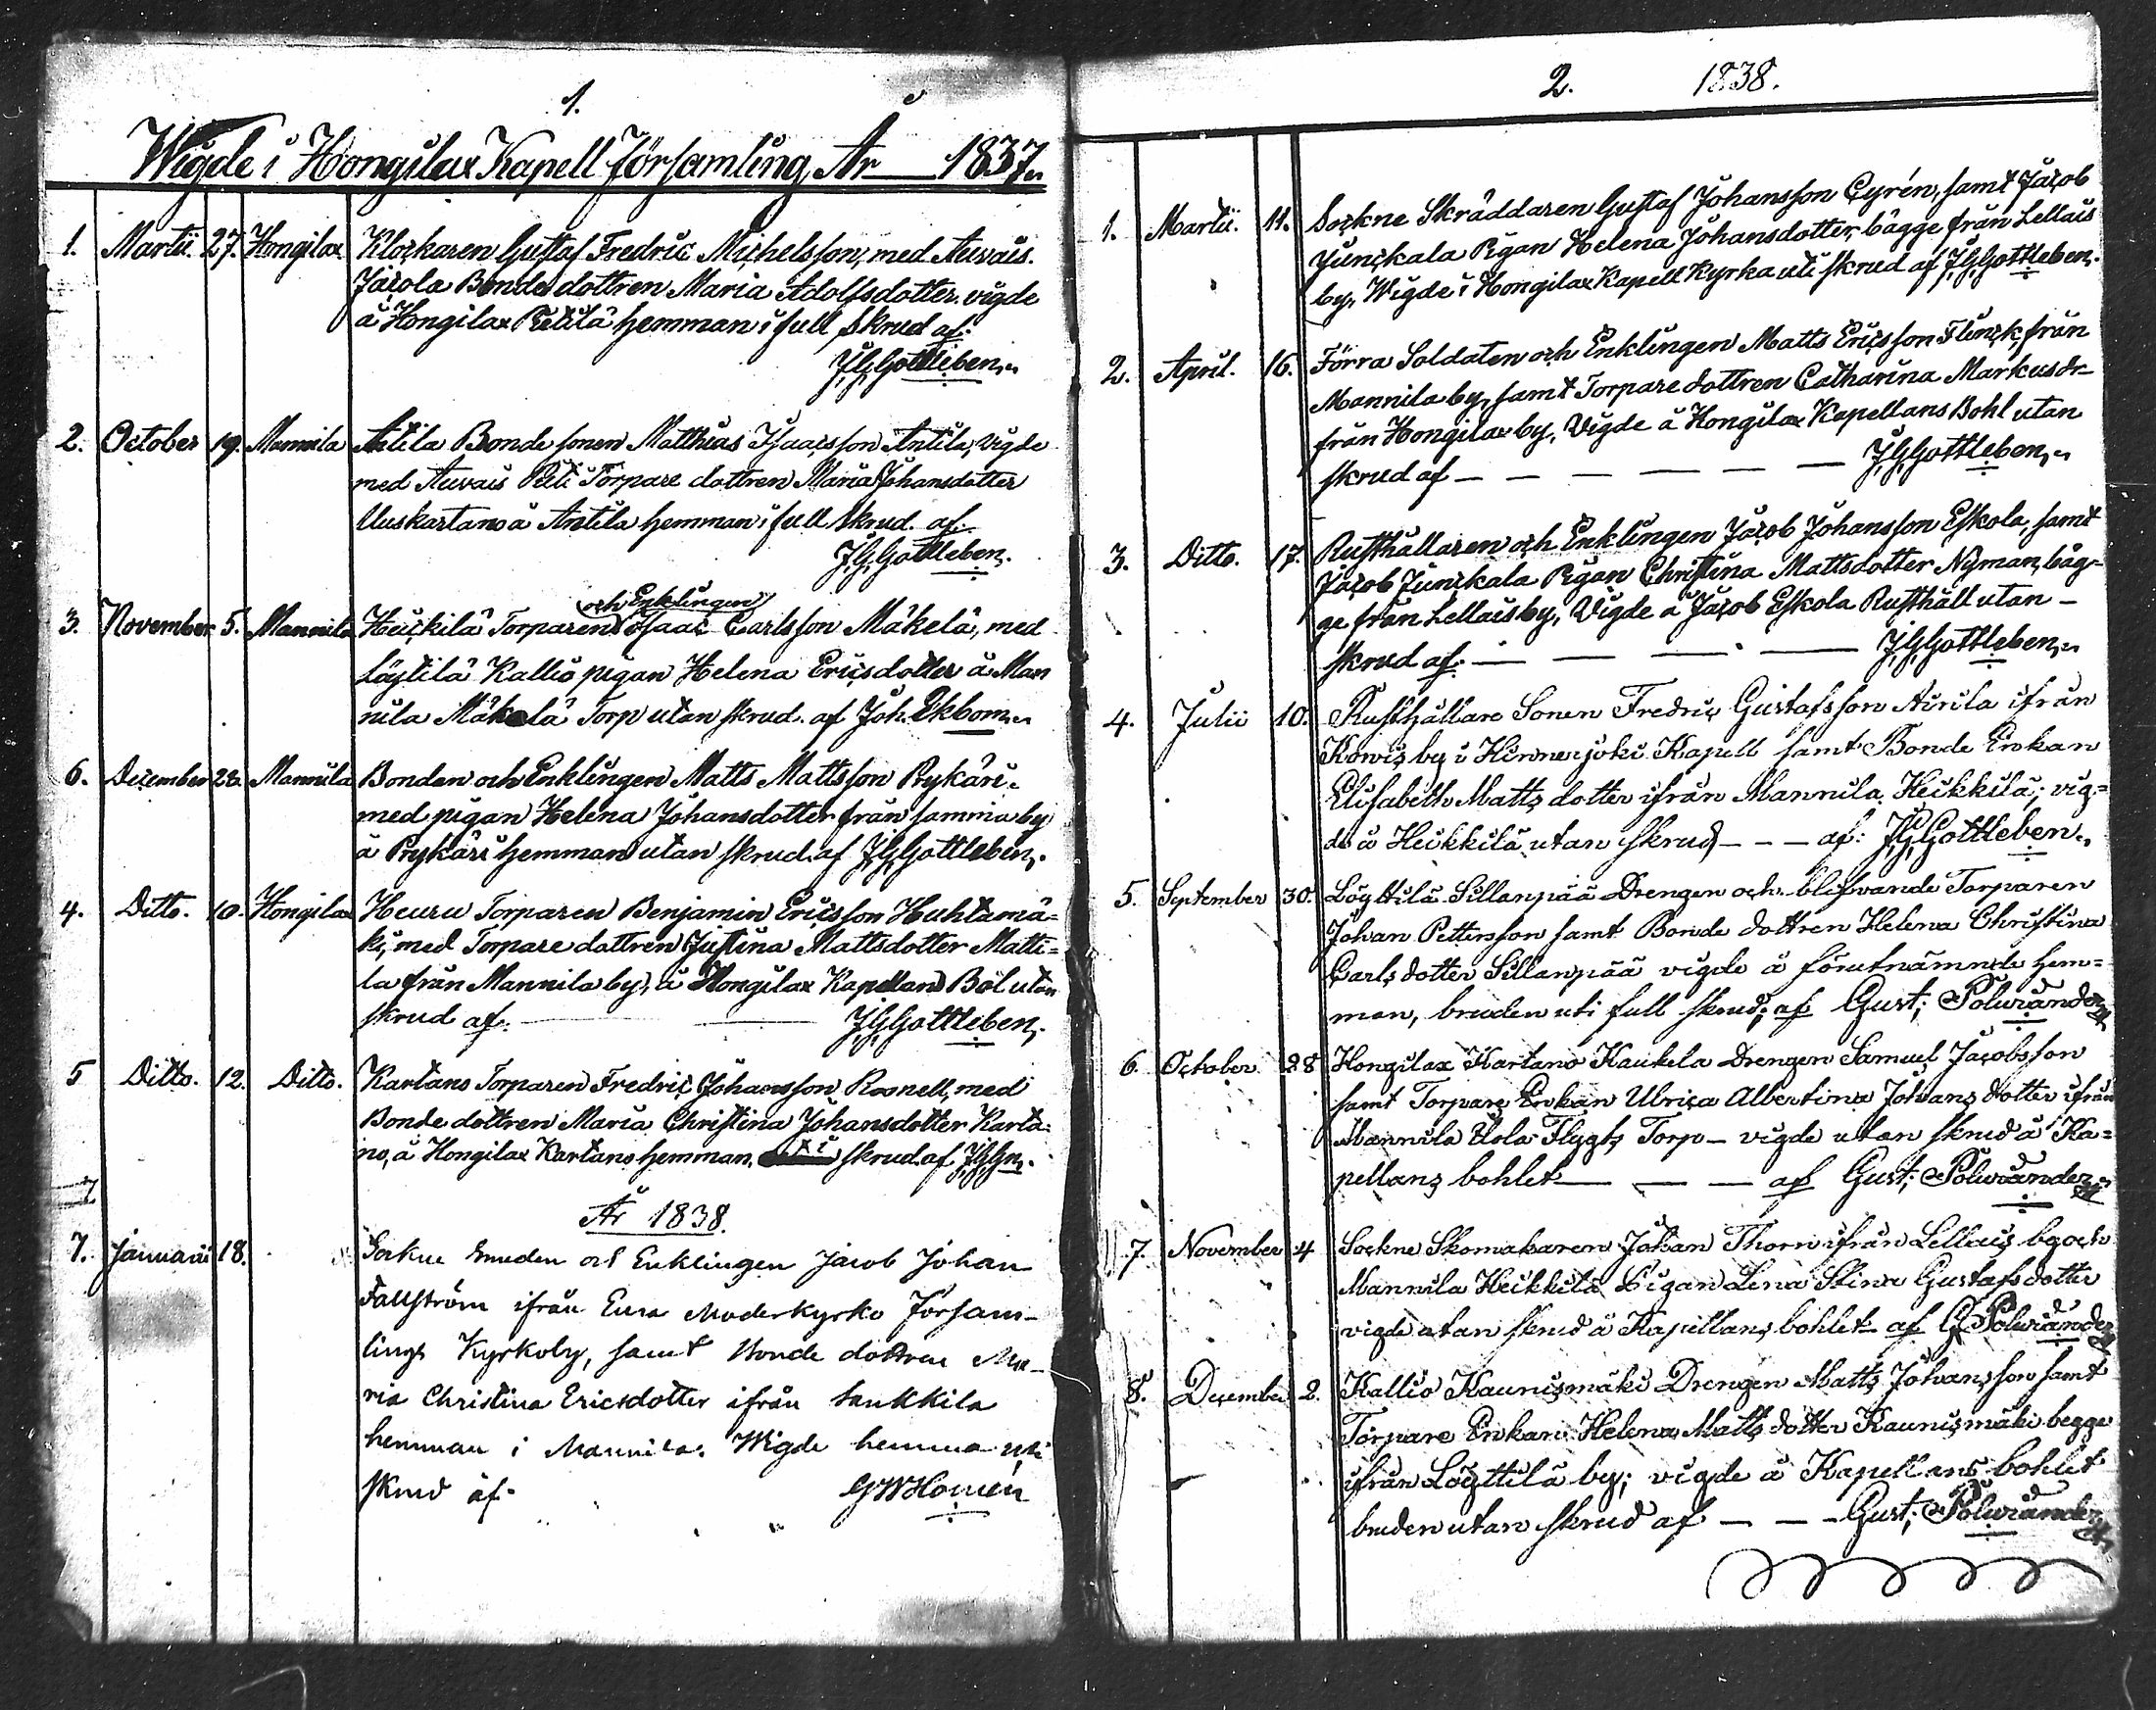 1.
Wigde i Hongilax Kapell Församling År 1837.
1. Martii. 27. Hongilax Klockaren Gustaf Fredric Michelsson, med Auvais.
Jacola Bonde dottren Maria Adolfsdotter. vigde
å Hongilax Pelttilä hemman i full skrud af:
J,G,Gottleben,,
2. October 19. Mannila Antila Bonde sonen Matthias Isaacsson Antila, vigde
med Auvais Peli Torpare dottren Maria Johansdotter
Uuskartano å Antila hemman i full skrud. af.
J,G,Gottleben.
och Enklingen
3. November 5. Mannila Heickilä Torparen Isaac Carlsson Mäkelä, med
Löytilä Kallio pigan Helena Ericsdotter å Man
nila Mäkelä Torp utan skrud. af Joh. Ekbom,,
6. December 28. Mannila Bonden och Enklingen Matts Mattsson Prykäri.
med pigan Helena Johansdotter från samma by
å Prykäri hemman utan skrud. af J,G,Gottleben,.
4. Ditto. 10. Hongilax Heuru Torparen Benjamin Ericsson Huhtamä=
ki, med Torpare dottren Justina Mattsdotter Matti=
la från Mannila by, å Hongilax Kapellans Bol utan
skrud af. J,G,Gottleben,.
5 Ditto. 12. Ditto. Kartano Torparen Fredric Johansson Rosnell, med
Bonde dottren Maria Christina Johansdotter Karta=
no, å Hongilax Kartano hemman, i skrud. af J,G,Gn,.
År 1838.
7. Januarii 18. Sockne Smeden och Enklingen Jacob Johan
Fallström ifrån Eura Moderkyrko Försam-
lings Kyrkoby, samt Bonde dottren Ma-
ria Christina Ericsdotter ifrån
hemman i Mannila. Wigde hemma uti
skrud af. GWHomén
2. 1838.
1. Martii. 11. Sockne Skräddaren Gustaf Johansson Cyrén, samt Jacob
Junckala Pigan Helena Johansdotter, bägge från Lellais
by, Wigde i Hongilax Kapell Kyrka uti skrud af J,G,Gottleben,.
2. April. 16. Förra Soldaten och Enklingen Matts Ericsson Flinck, från
Mannila by, samt Torpare dottren Catharina Markusdr
från Hongilax by, Vigde å Hongilax Kapellans Bohl utan
skrud af — — — — — — J,G,Gottleben,,
3. Ditto. 17. Rusthållaren och Enklingen Jacob Johansson Eskola, samt
Jacob Junckala Pigan Christina Mattsdotter Nyman, bäg=
ge från Lellais by, Vigde å Jacob Eskola Rusthåll utan -
skrud af: — — — — J,G,Gottleben,,
4. Julii 10. Rusthållare Sonen Fredric Gustafsson Airila ifrån
Kowis by i Hinnerjoki Kapell samt Bonde Enkan
Elisabeth Matts dotter ifrån Mannila Heikkilä; vig=
de å Heikkilä utan skrud - - - af: J,G,Gottleben,,
5. September 30. Löyttilä Sillanpää Drengen och blifwande Torparen
Johan Pettersson samt Bonde dottren Helena Christina
Carls dotter Sillanpää vigde å förutnämnde hem=
man, bruden uti full skrud; af Gust; Polviander
6 October 28 Hongilax Kartano Kaukela Drengen Samuel Jacobsson
samt Torpare Enkan Ulrica Albertina Johans dotter ifrån
Mannila Uola Flygts Torp - vigde utan skrud å Ka=
pellans bohlet — — — af Gust; Polviander
7. November 4 Sockne Skomakaren Johan Thorn ifrån Lellais by och
Mannila Heikkilä Pigan Lena Stina Gustafs dotter
vigde utan skrud å Kapellans bohlet af G Polviander
8. December 2. Kallio Kaunismäki Drengen Matts Johansson samt
Torpare Enkan Helena Matts dotter Kaunismäki begge
ifrån Löyttilä by; vigde å Kapellans bohlet
bruden utan skrud af — — - Gust; Polviander